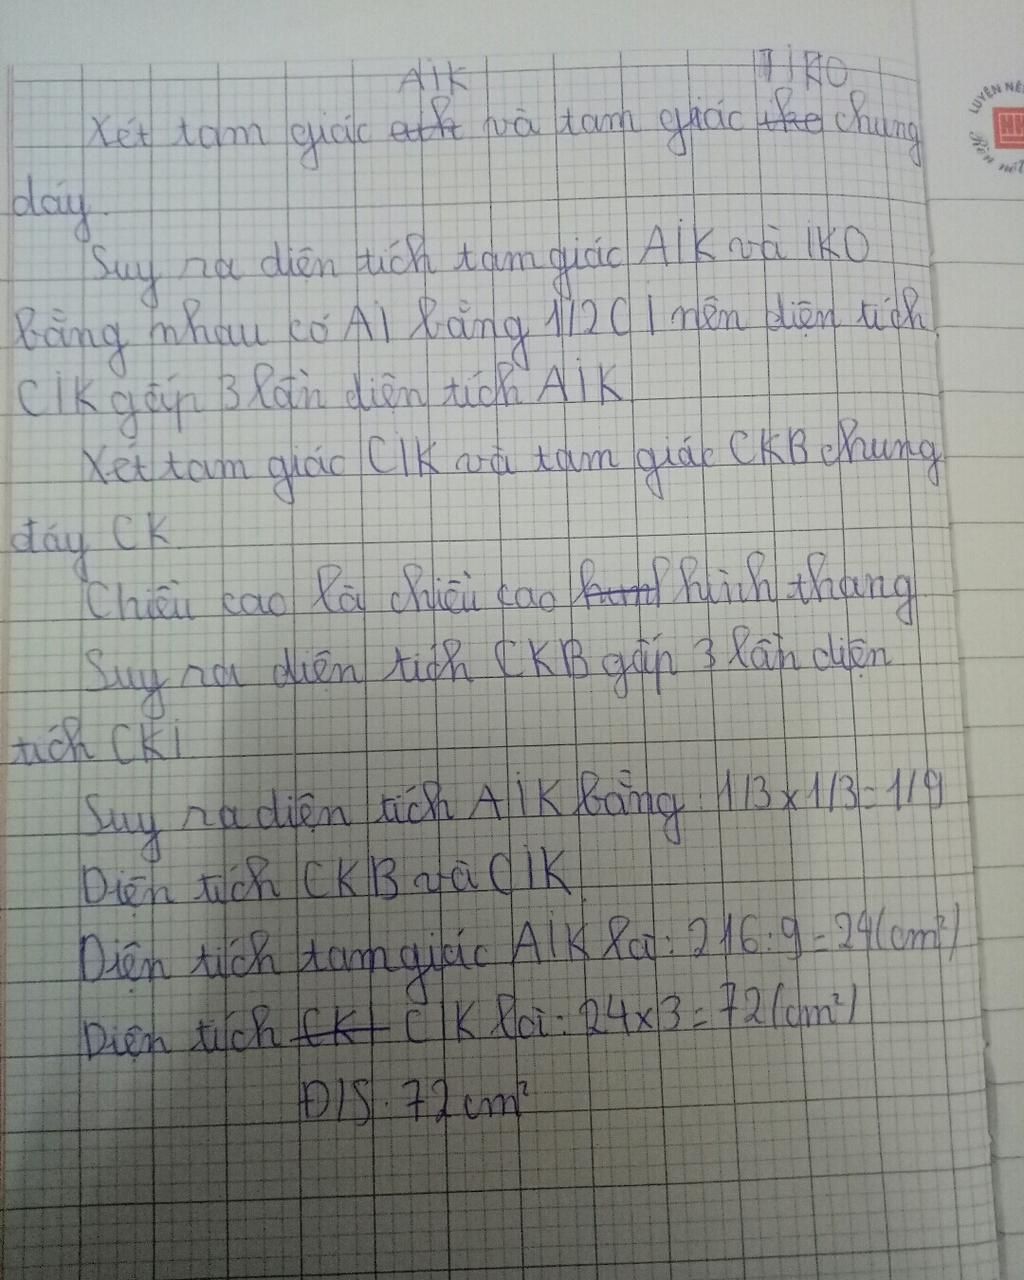 AIK IKO
Xét tam giác và tam giác chung
đáy.
Suy ra diện tích tam giác AIK và IKO
bằng nhau có AI bằng 1/2 CI nên diện tích
CIK gấp 3 lần diện tích AIK
Xét tam giác CIK và tam giác CKB chung
đáy CK
Chiều cao là chiều cao hình thang
Suy ra diện tích CKB gấp 3 lần diện
tích CKI
Suy ra diện tích AIK bằng: 1/3 x 1/3 = 1/9
Diện tích CKB và CIK
Diện tích tam giác AIK là: 216 : 9 = 24 (cm²)
Diện tích CIK là: 24 x 3 = 72 (cm²)
Đ/S: 72 cm²